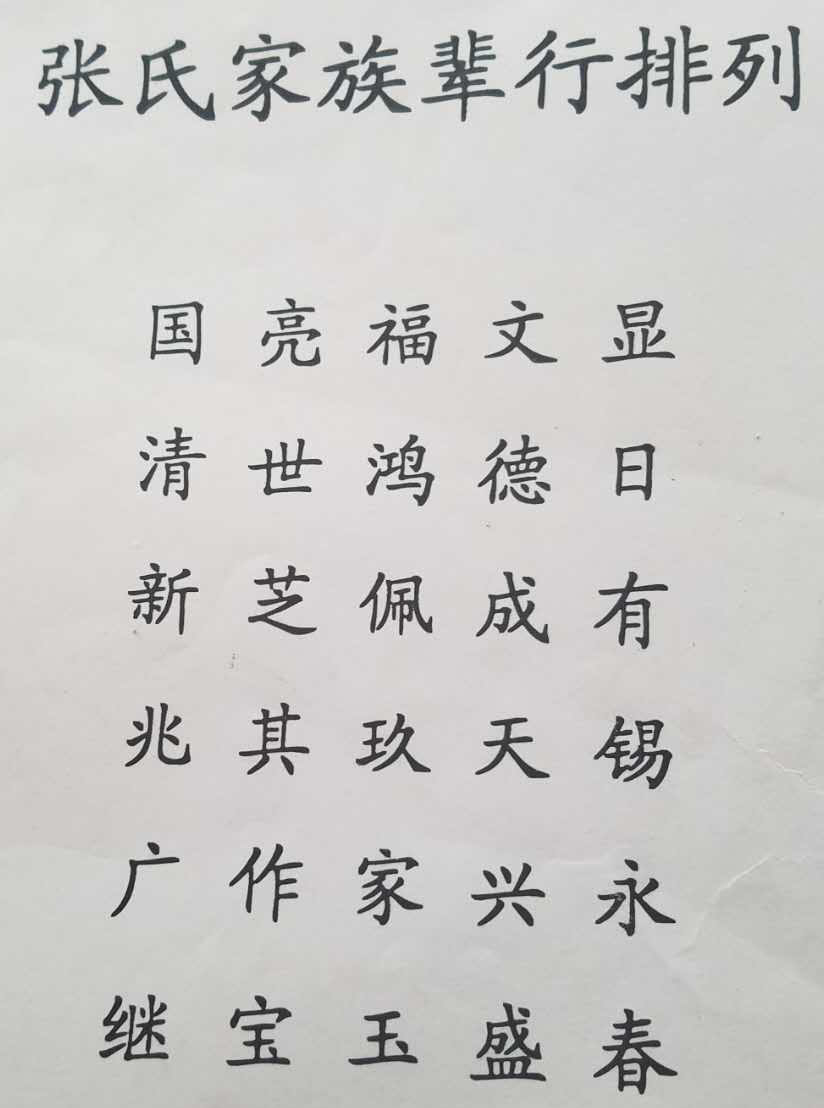 张氏家族辈行排列
国亮福文显
清世鸿德日
新芝佩成有
兆其玖天锡
广作家兴永
继宝玉盛春